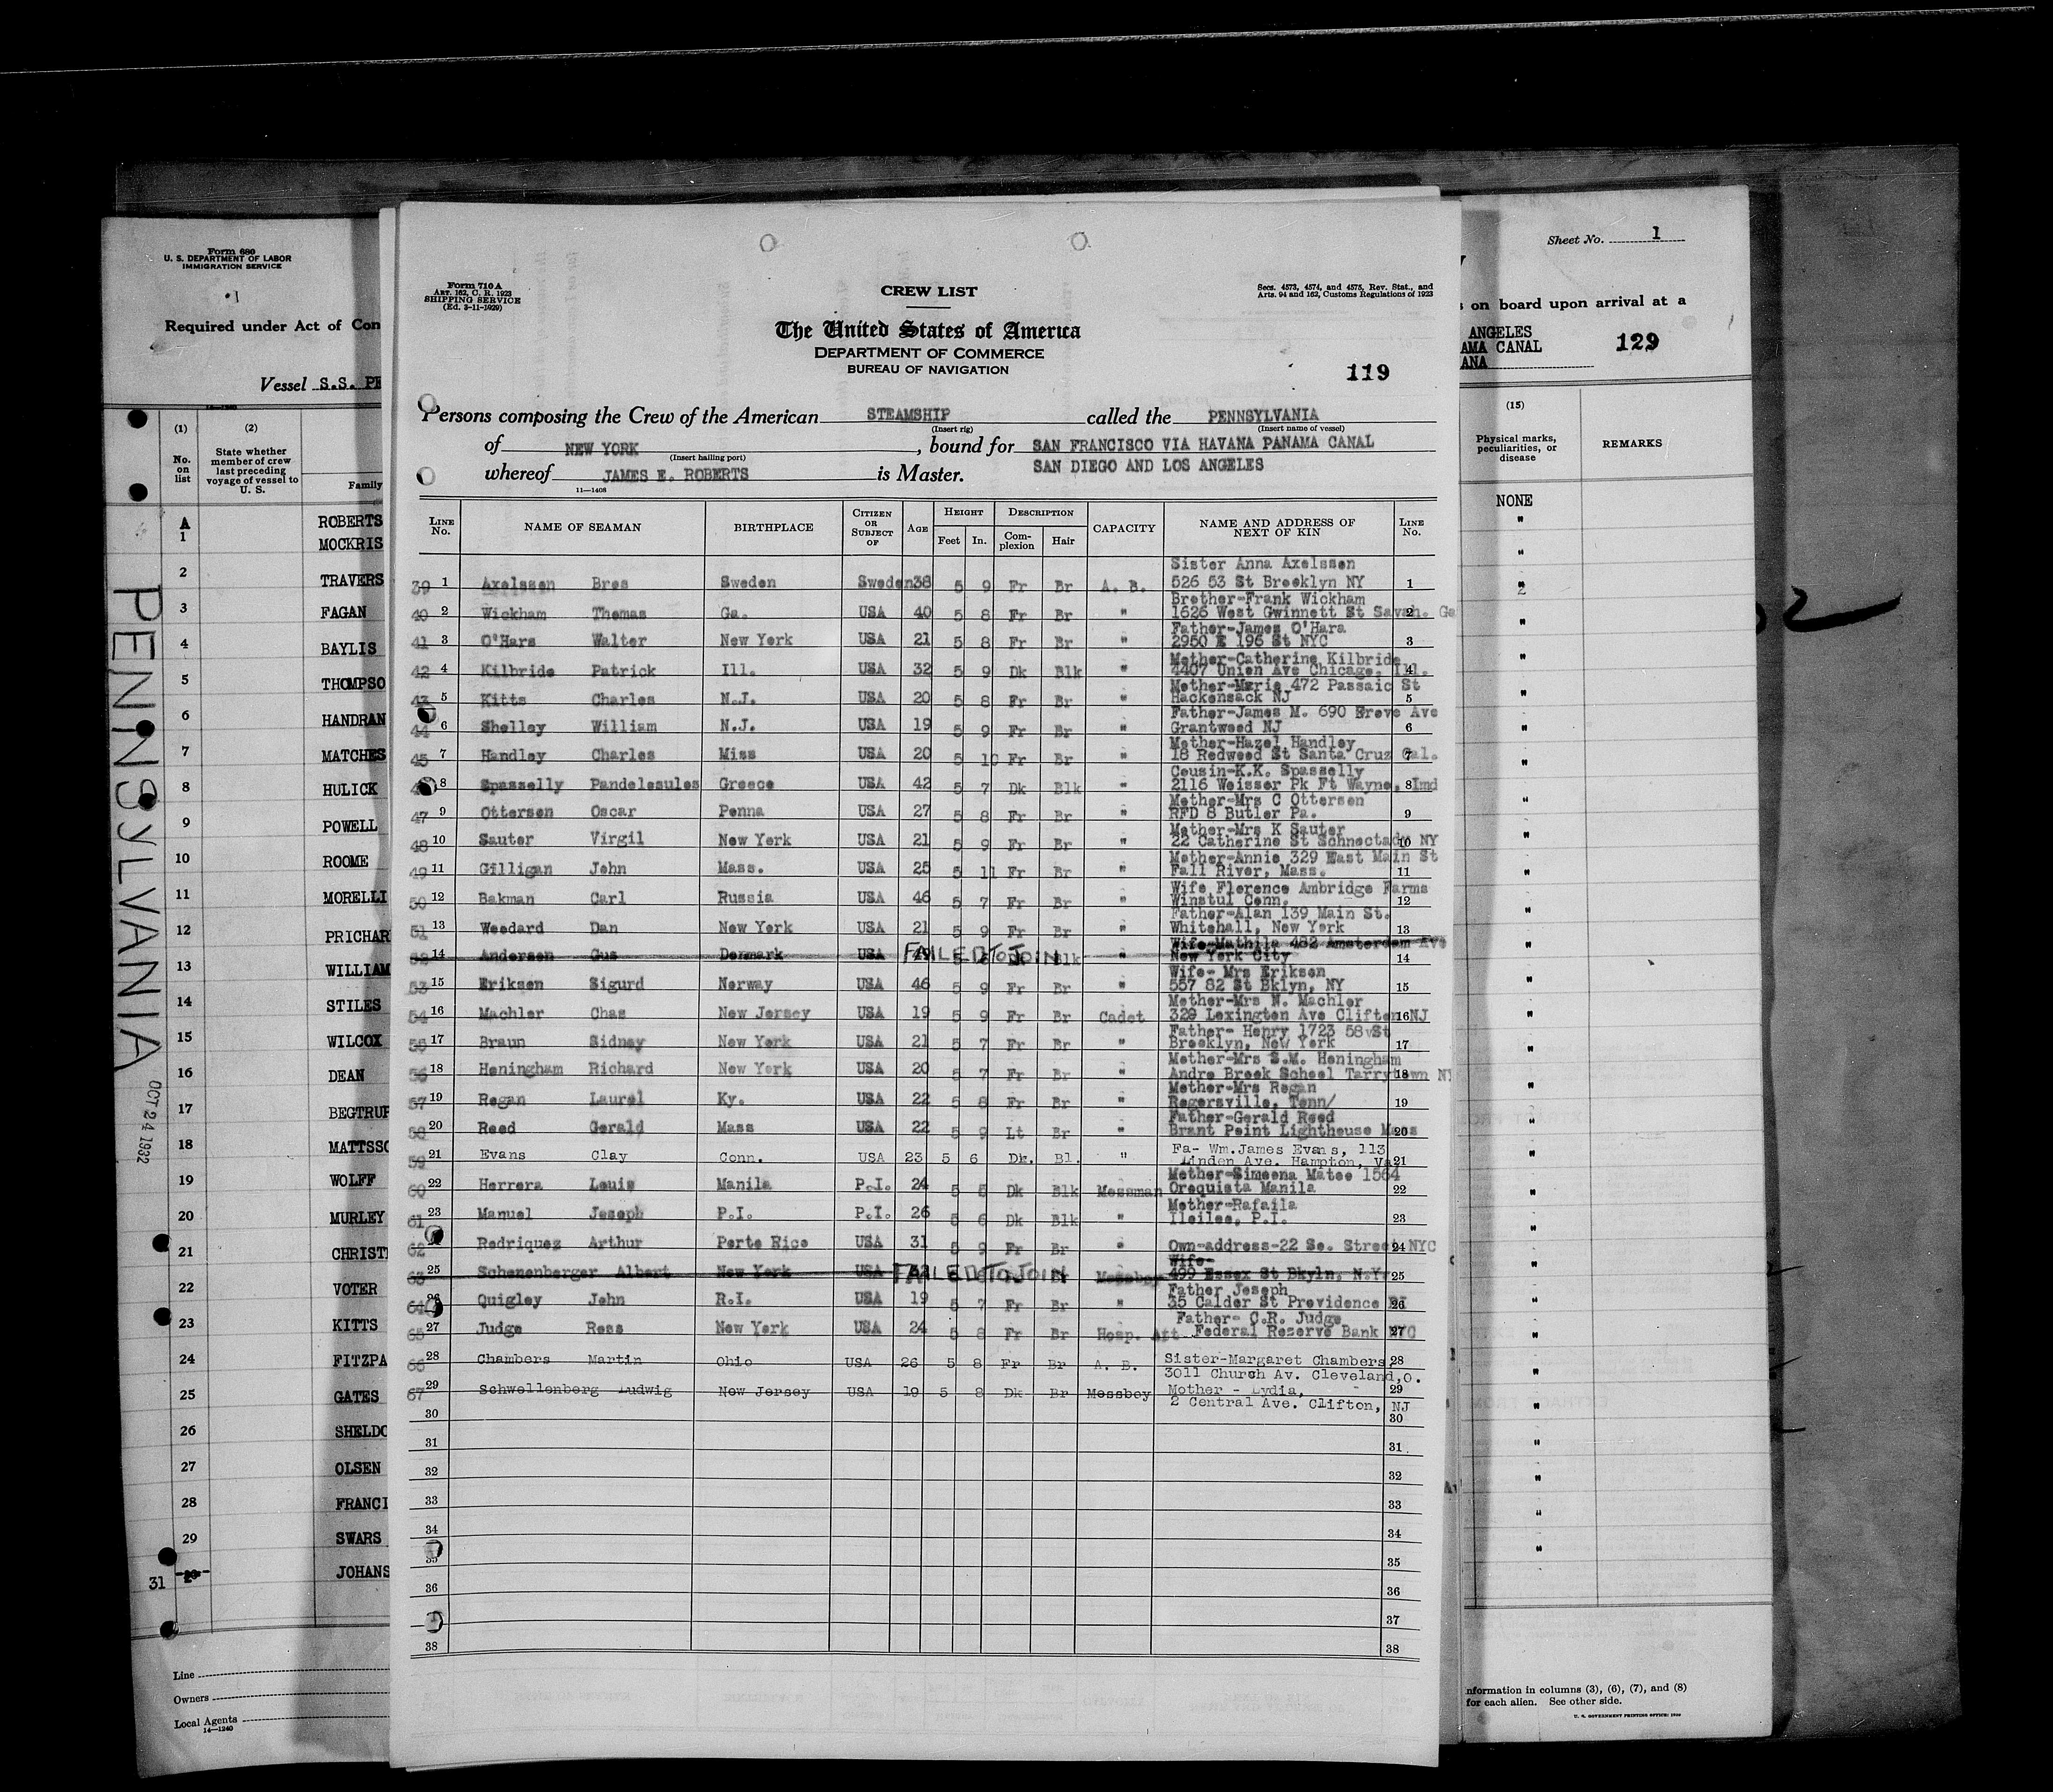 Form 680
U. S. DEPARTMENT OF LABOR
IMMIGRATION SERVICE
Required under Act of Con
Vessel S.S. PE
(1) (2)
No. on list
State whether member of crew last preceding voyage of vessel to U. S.
Family
A ROBERTS
1 MOCKRIS
2 TRAVERS
3 FAGAN
4 BAYLIS
5 THOMPSO
6 HANDRAN
7 MATCHES
8 HULICK
9 POWELL
10 ROOME
11 MORELLI
12 PRICHAR
13 WILLIAM
14 STILES
15 WILCOX
16 DEAN
17 BEGTRUP
18 MATTSSO
19 WOLFF
20 MURLEY
21 CHRISTI
22 VOTER
23 KITTS
24 FITZPA
25 GATES
26 SHELDO
27 OLSEN
28 FRANCI
29 SWARS
31 JOHANS
Line
Owners
Local Agents
14—1240
PENNSYLVANIA
OCT 24 1932
Form 710 A
ART. 162, C. R. 1923
SHIPPING SERVICE
(Ed. 3-11-1929)
CREW LIST
Secs. 4573, 4574, and 4575, Rev. Stat., and
Arts. 94 and 162, Customs Regulations of 1923
The United States of America
DEPARTMENT OF COMMERCE
BUREAU OF NAVIGATION
119
Persons composing the Crew of the American STEAMSHIP called the PENNSYLVANIA
(Insert rig) (Insert name of vessel)
of NEW YORK, bound for SAN FRANCISCO VIA HAVANA PANAMA CANAL
(Insert hailing port)
SAN DIEGO AND LOS ANGELES
whereof JAMES E. ROBERTS is Master.
11—1408
LINE No. NAME OF SEAMAN BIRTHPLACE CITIZEN OR SUBJECT OF AGE HEIGHT Feet In. DESCRIPTION Complexion Hair CAPACITY NAME AND ADDRESS OF NEXT OF KIN LINE No.
Sister Anna Axelssen
39 1 Axelssen Bres Sweden Sweden 38 5 9 Fr Br A. B. 526 53 St Brooklyn NY 1
Brother-Frank Wickham
40 2 Wickham Thomas Ga. USA 40 5 8 Fr Br " 1626 West Gwinnett St Savah. Ga 2
Father-James O'Hara
41 3 O'Hars Walter New York USA 21 5 8 Fr Br " 2950 E 196 St NYC 3
Mother-Catherine Kilbride
42 4 Kilbride Patrick Ill. USA 32 5 9 Dk Blk " 4407 Union Ave Chicago, Ill. 4
Mother-Marie 472 Passaic St
43 5 Kitts Charles N.J. USA 20 5 8 Fr Br " Hackensack NJ 5
Father-James M. 690 Ave
44 6 Shelley William N.J. USA 19 5 9 Fr Br " Grantwood NJ 6
Mother-Hazel Handley
45 7 Handley Charles Miss USA 20 5 10 Fr Br " 18 Redwood St Santa Cruz Cal. 7
Cousin-K.K. Spasselly
8 Spasselly Pandelesules Greece USA 42 5 7 Dk Blk " 2116 Weisser Pk Ft Wayne, Ind 8
Mother-Mrs C Ottersen
47 9 Ottersen Oscar Penna USA 27 5 8 Fr Br " RFD 8 Butler Pa. 9
Mother-Mrs K Sauter
48 10 Sauter Virgil New York USA 21 5 9 Fr Br " 22 Catherine St Schnectady NY 10
Mother-Annie 329 East Main St
49 11 Gilligan John Mass. USA 25 5 11 Fr Br " Fall River, Mass. 11
Wife Florence Ambridge Farms
50 12 Bakman Carl Russia USA 46 5 7 Fr Br " Winstul Conn. 12
Father-Alan 139 Main St.
51 13 Woodard Dan New York USA 21 5 9 Fr Br " Whitehall, New York 13
Wife-Mathila 482 Amsterdam Ave
52 14 Andersen Gus Denmark USA FAILED TO JOIN Blk " New York City 14
Wife- Mrs Eriksen
53 15 Eriksen Sigurd Norway USA 46 5 9 Fr Br " 557 82 St Bklyn, NY 15
Mother-Mrs N. Machler
54 16 Machler Chas New Jersey USA 19 5 9 Fr Br Cadet 329 Lexington Ave Clifton NJ 16
Father- Henry 1723 58 St
55 17 Braun Sidney New York USA 21 5 7 Fr Br " Brooklyn, New York 17
Mother-Mrs S.M. Heningham
56 18 Heningham Richard New York USA 20 5 7 Fr Br " Andre Brook School Tarrytown NY 18
Mother-Mrs Regan
57 19 Regan Laurel Ky. USA 22 5 8 Fr Br " Rogersville, Tenn/ 19
Father-Gerald Reed
58 20 Reed Gerald Mass USA 22 5 9 Lt Br " Brant Point Lighthouse Mass 20
Fa- Wm.James Evans, 113
59 21 Evans Clay Conn. USA 23 5 6 Dk. Bl. " Linden Ave. Hampton, Va 21
Mother-Simeona Matee 1564
60 22 Herrera Louis Manila P.I. 24 5 5 Dk Blk Messman Orequista Manila 22
Mother-Rafaila
61 23 Manuel Joseph P.I. P.I. 26 5 6 Dk Blk " Iloiloe, P.I. 23
62 Rodriquez Arthur Porto Rico USA 31 5 9 Fr Br " Own-address-22 So. Street NYC 24
Wife-
63 25 Schonenberger Albert New York USA FAILED TO JOIN Br Messboy 499 Essex St Bkyln, N.Y. 25
Father Joseph
64 26 Quigley John R.I. USA 19 5 7 Fr Br " 35 Calder St Providence RI 26
Father- C.R. Judge
65 27 Judge Ross New York USA 24 5 8 Fr Br Hosp. Att Federal Reserve Bank NYC 27
66 28 Chambers Martin Ohio USA 26 5 8 Fr Br A. B. Sister-Margaret Chambers, 28
3011 Church Av. Cleveland,O.
67 29 Schwellenberg Ludwig New Jersey USA 19 5 8 Dk Br Messboy Mother - Lydia, 29
2 Central Ave. Clifton, NJ
30 30
31 31
32 32
33 33
34 34
35 35
36 36
37
38 38
Sheet No. 1
on board upon arrival at a
ANGELES
AMA CANAL
ANA
129
(15)
Physical marks, peculiarities, or disease
REMARKS
NONE
nformation in columns (3), (6), (7), and (8)
for each alien. See other side.
U. S. GOVERNMENT PRINTING OFFICE